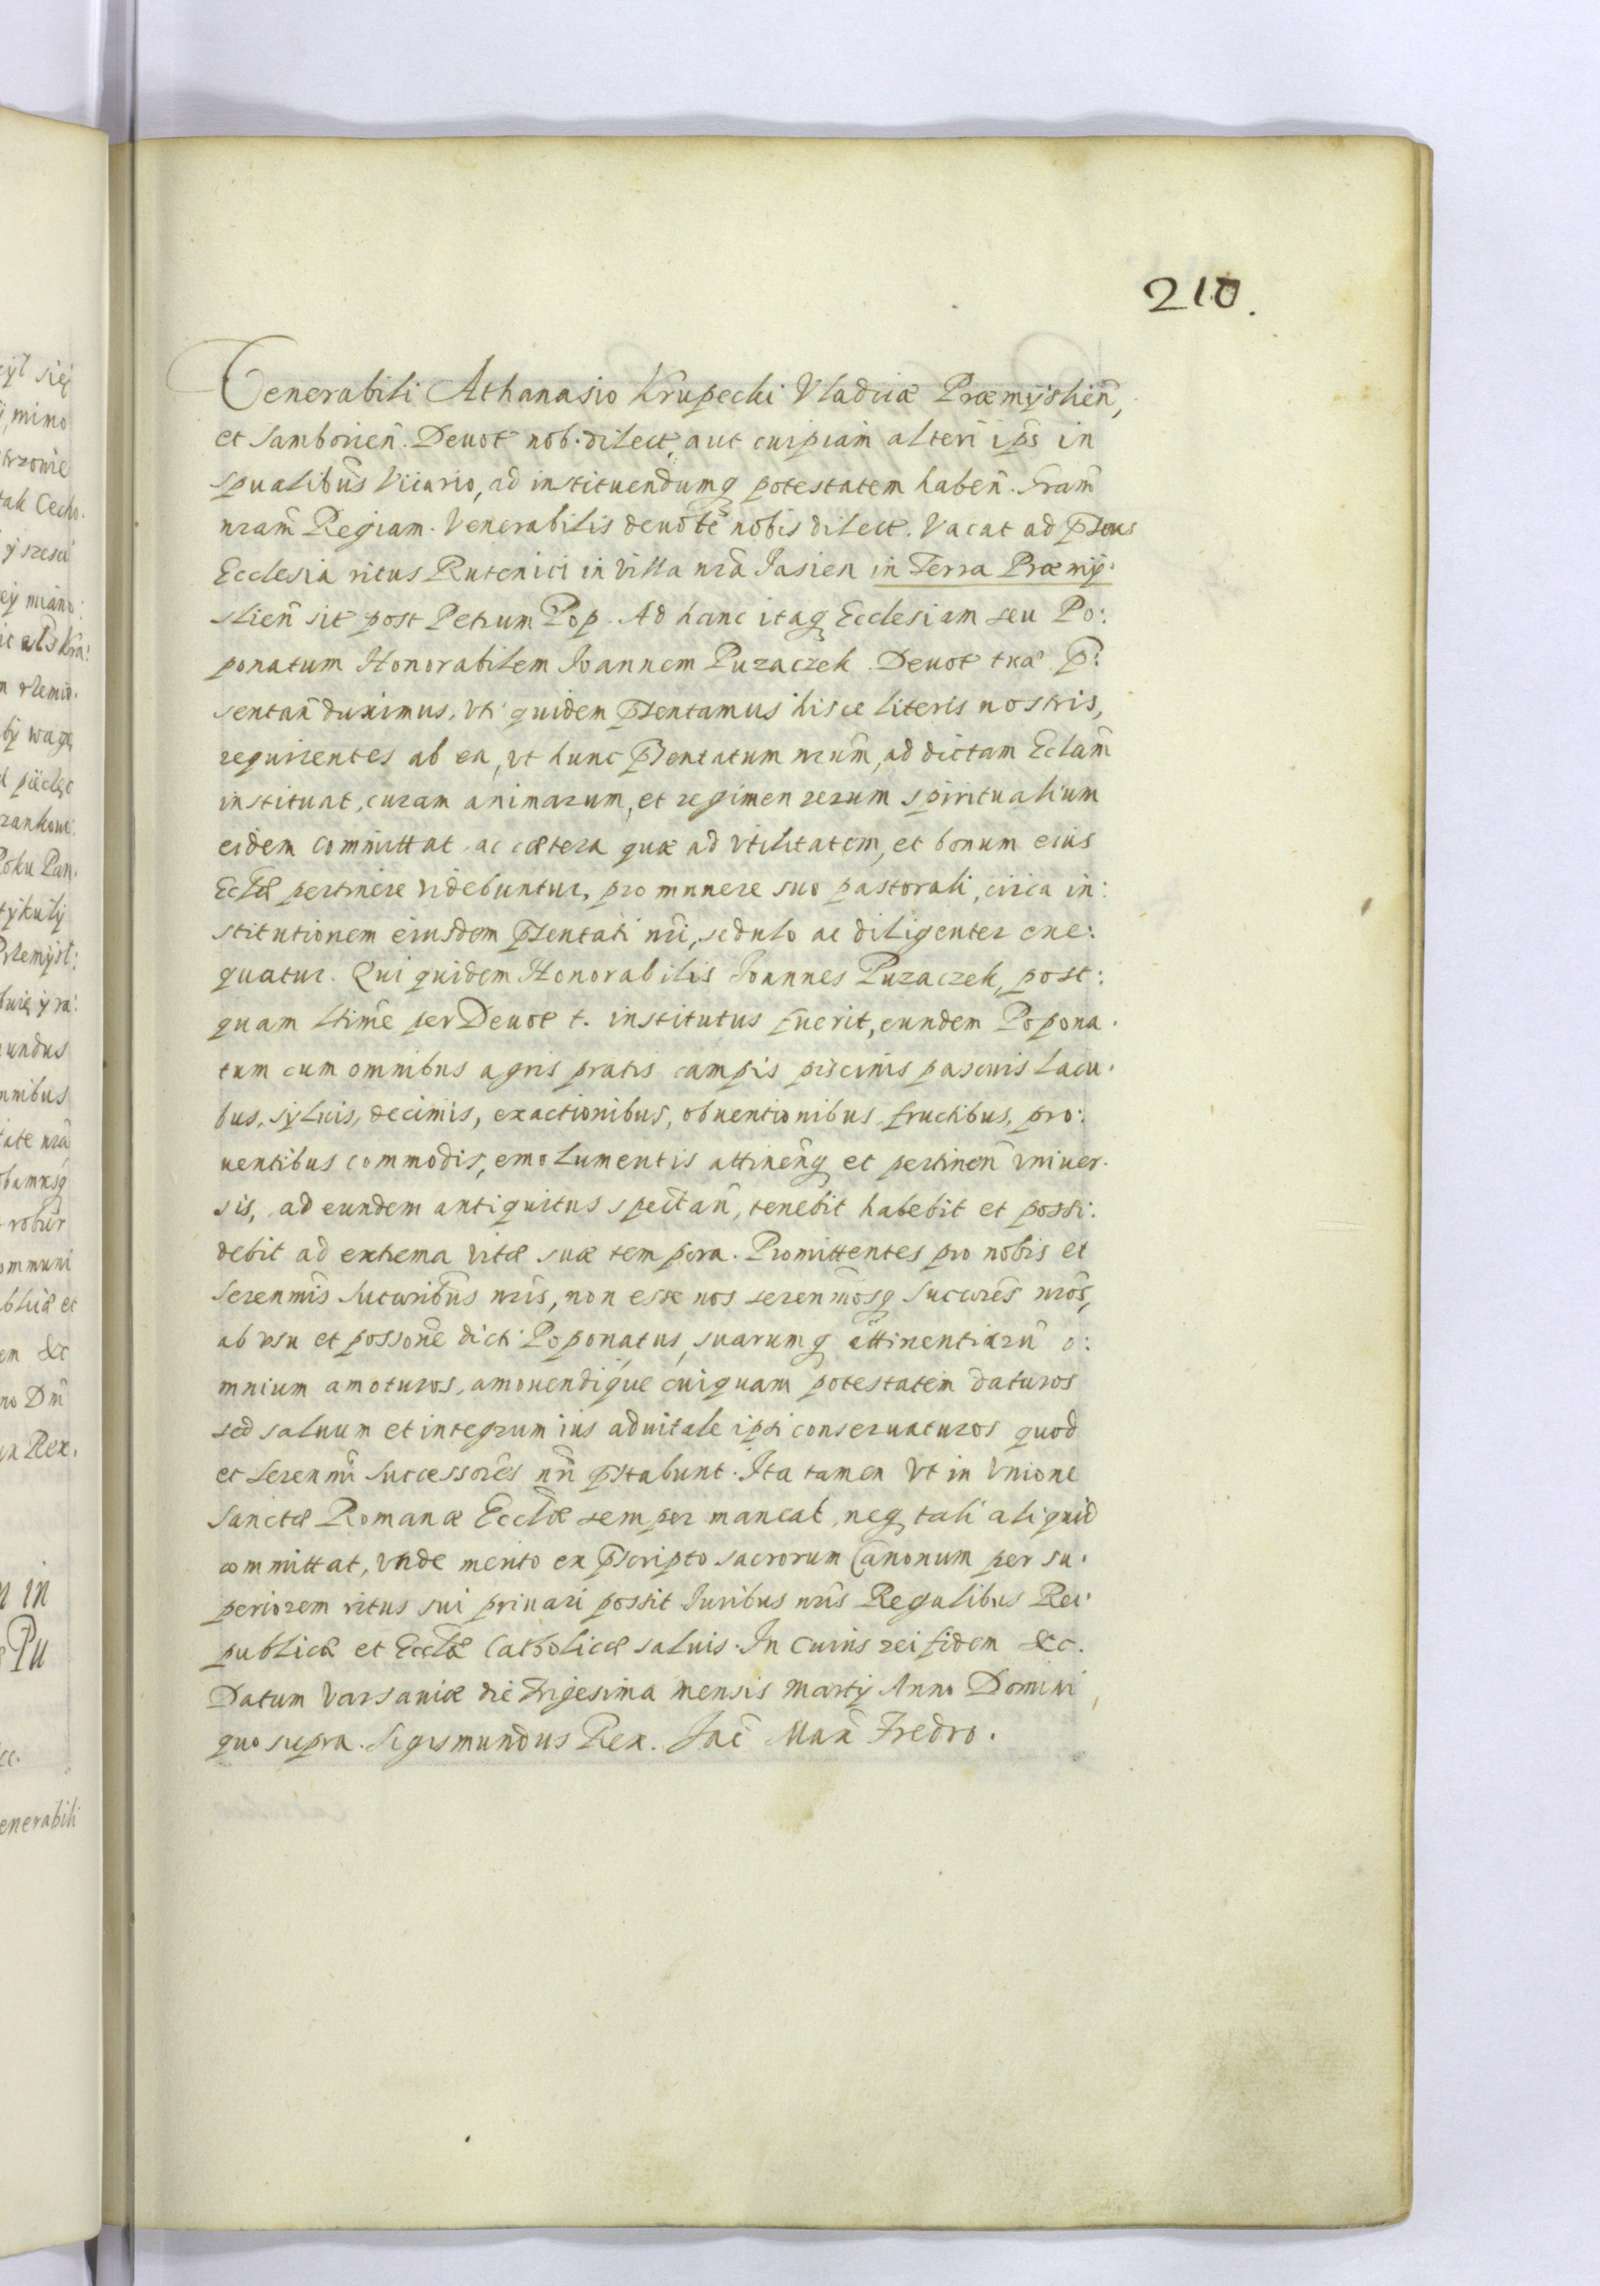 210.
Venerabili Athanasio Krupecki Vladicæ Præmysliēn,
et Samborieñ. Deuot nob. dilect, aut cuipiam alteri ips̃ in
spualibus̃ Vicario, ad instituendumq potestatem habeñ. Gram̃
nram̃ Regiam. Venerabilis deuote nobis dilect. Vacat ad p̃sens
Ecclesia ritus Rutenici in Villa nrã Jasien in Terra Præmij.
slieñ sit post Petrum Pop. Ad hanc itaq Ecclesiam seu Po:
ponatum Honorabilem Joannem Puzaczek Deuot trã p̃:
sentañ duximus, vti quidem p̃sentamus hisce literis nostris,
requirentes ab ea, vt hunc p̃sentatum nrũm, ad dictam Eclãm
instituat, curam animarum, et regimen rerum spiritualium
eidem committat ac cætera quæ ad vtilitatem, et bonum eius
Eclæ̃ pertinere videbuntur, pro munere suo pastorali, circa in:
stitutionem eiusdem p̃sentati nri̅, sedulo ac diligenter exe:
quatur. Qui quidem Honorabilis Joannes Puzaczek, post:
quam ltimẽ per Deuot t. institutus fuerit, eundem Popona.
tum cum omnibus agris pratis campis piscinis pascuis lacu.
bus, syluis, decimis, exactionibus, obuentionibus fructibus, pro:
uentibus commodis, emolumentis attineñq et pertineñ vniuer.
sis, ad eundem antiquitus spectañ, tenebit habebit et possi:
debit ad extrema vitæ suæ tempora. Promittentes pro nobis et
Serenmis̃ Sucuribus̃ nris̃, non esse nos serenmos̃q Succures̃ nros̃,
ab vsu et possone͂ dicti Poponatus, suarumq attinentiarũ o:
mnium amoturos, amouendique cuiquam potestatem daturos
sed saluum et integrum ius aduitale ipsi conseruaturos quod
et Serenmi̅ Successores nri̅ p̃stabunt. Ita tamen Vt in Vnione
Sanctæ Romanæ Eccl̃æ semper maneat, neq tali aliquid
committat, vnde merito ex p̃scripto sacrorum Canonum per su.
periorem ritus sui priuari possit Juribus nris̃ Regalibus Rei.
publicæ et Eccl̃æ Catholicæ saluis. In Cuius rei fidem &c.
Datum Varsauiæ die Trigesima Mensis Martij Anno Domini
quo supra. Sigismundus Rex. Jac̃ Max̃ Fredro.